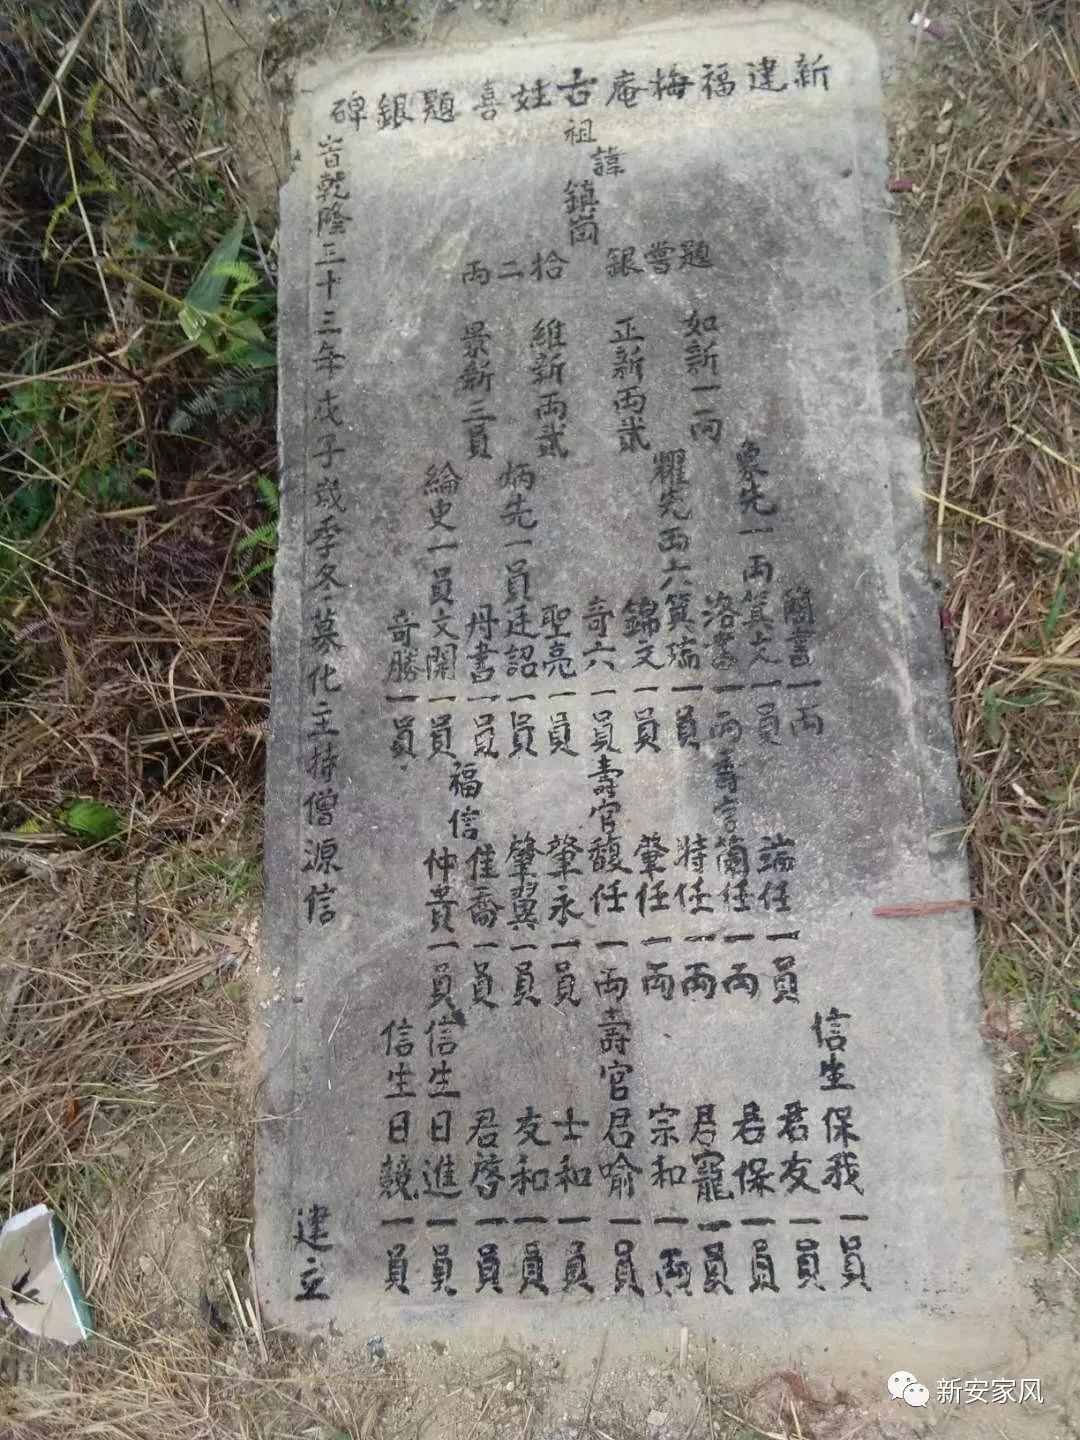 新建福梅庵古姓喜題銀碑
祖
諱
鎮崗
題嘗銀
拾二両
如新一両
正新両弍
維新両弍
景新三員
象先一両
耀先両六
炳先一員
綸史一員
簡書一両
箕文一員
洛書一両
箕瑞一員
錦文一員
奇六一員
聖亮一員
廷詔一員
丹書一員
文開一員
奇勝一員
福信
端任一員
壽官蘭任一両
特任一両
肇任一両
壽官馥任一両
肇永一員
肇翼一員
佳喬一員
仲貴一員
信生保我一員
君友一員
君保一員
君寵一員
宗和一両
壽官君喻一員
士和一員
友和一員
君啓一員
信生日進一員
信生日競一員
旹乾隆三十三年戊子歲季冬募化主持僧源信
建立
新安家风